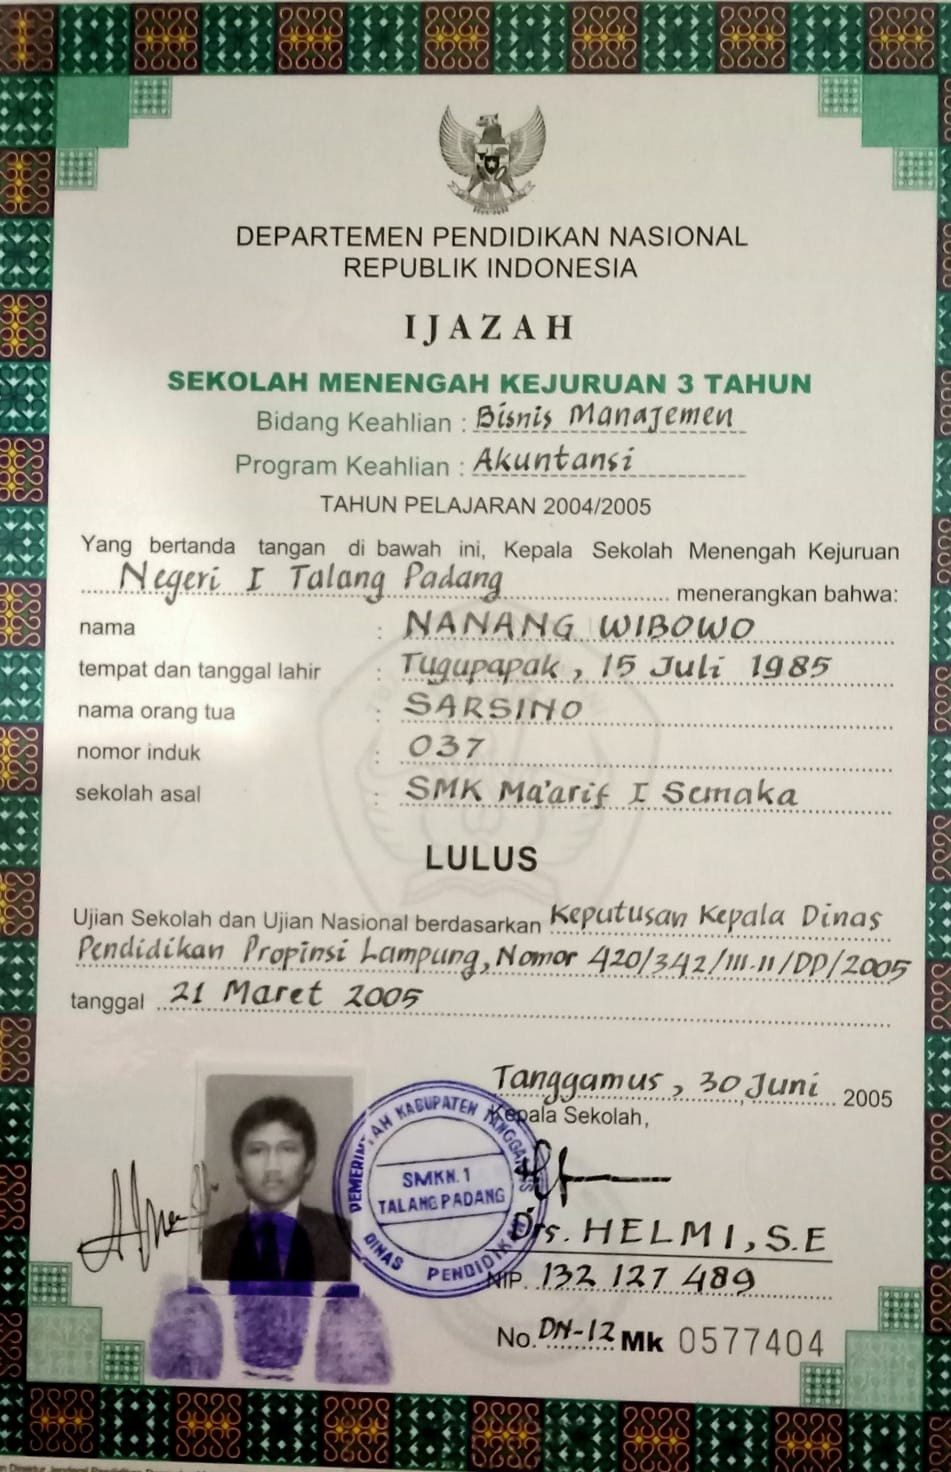 DEPARTEMEN PENDIDIKAN NASIONAL
REPUBLIK INDONESIA
IJAZAH
SEKOLAH MENENGAH KEJURUAN 3 TAHUN
Bidang Keahlian : Bisnis Manajemen
Program Keahlian : Akuntansi
TAHUN PELAJARAN 2004/2005
Yang bertanda tangan di bawah ini, Kepala Sekolah Menengah Kejuruan
Negeri I Talang Padang menerangkan bahwa:
nama : NANANG WIBOWO
tempat dan tanggal lahir : Tugupapak, 15 Juli 1985
nama orang tua : SARSINO
nomor induk : 037
sekolah asal : SMK Ma'arif I Semaka
LULUS
Ujian Sekolah dan Ujian Nasional berdasarkan Keputusan Kepala Dinas
Pendidikan Propinsi Lampung, Nomor 420/342/III.II/DP/2005
tanggal 21 Maret 2005
Tanggamus, 30 Juni 2005
Kepala Sekolah,
PEMERINTAH KABUPATEN TANGGAMUS
SMKN. 1
TALANG PADANG
DINAS PENDIDIKAN
Drs. HELMI, S.E
NIP. 132 127 489
No. DN-12 Mk 0577404